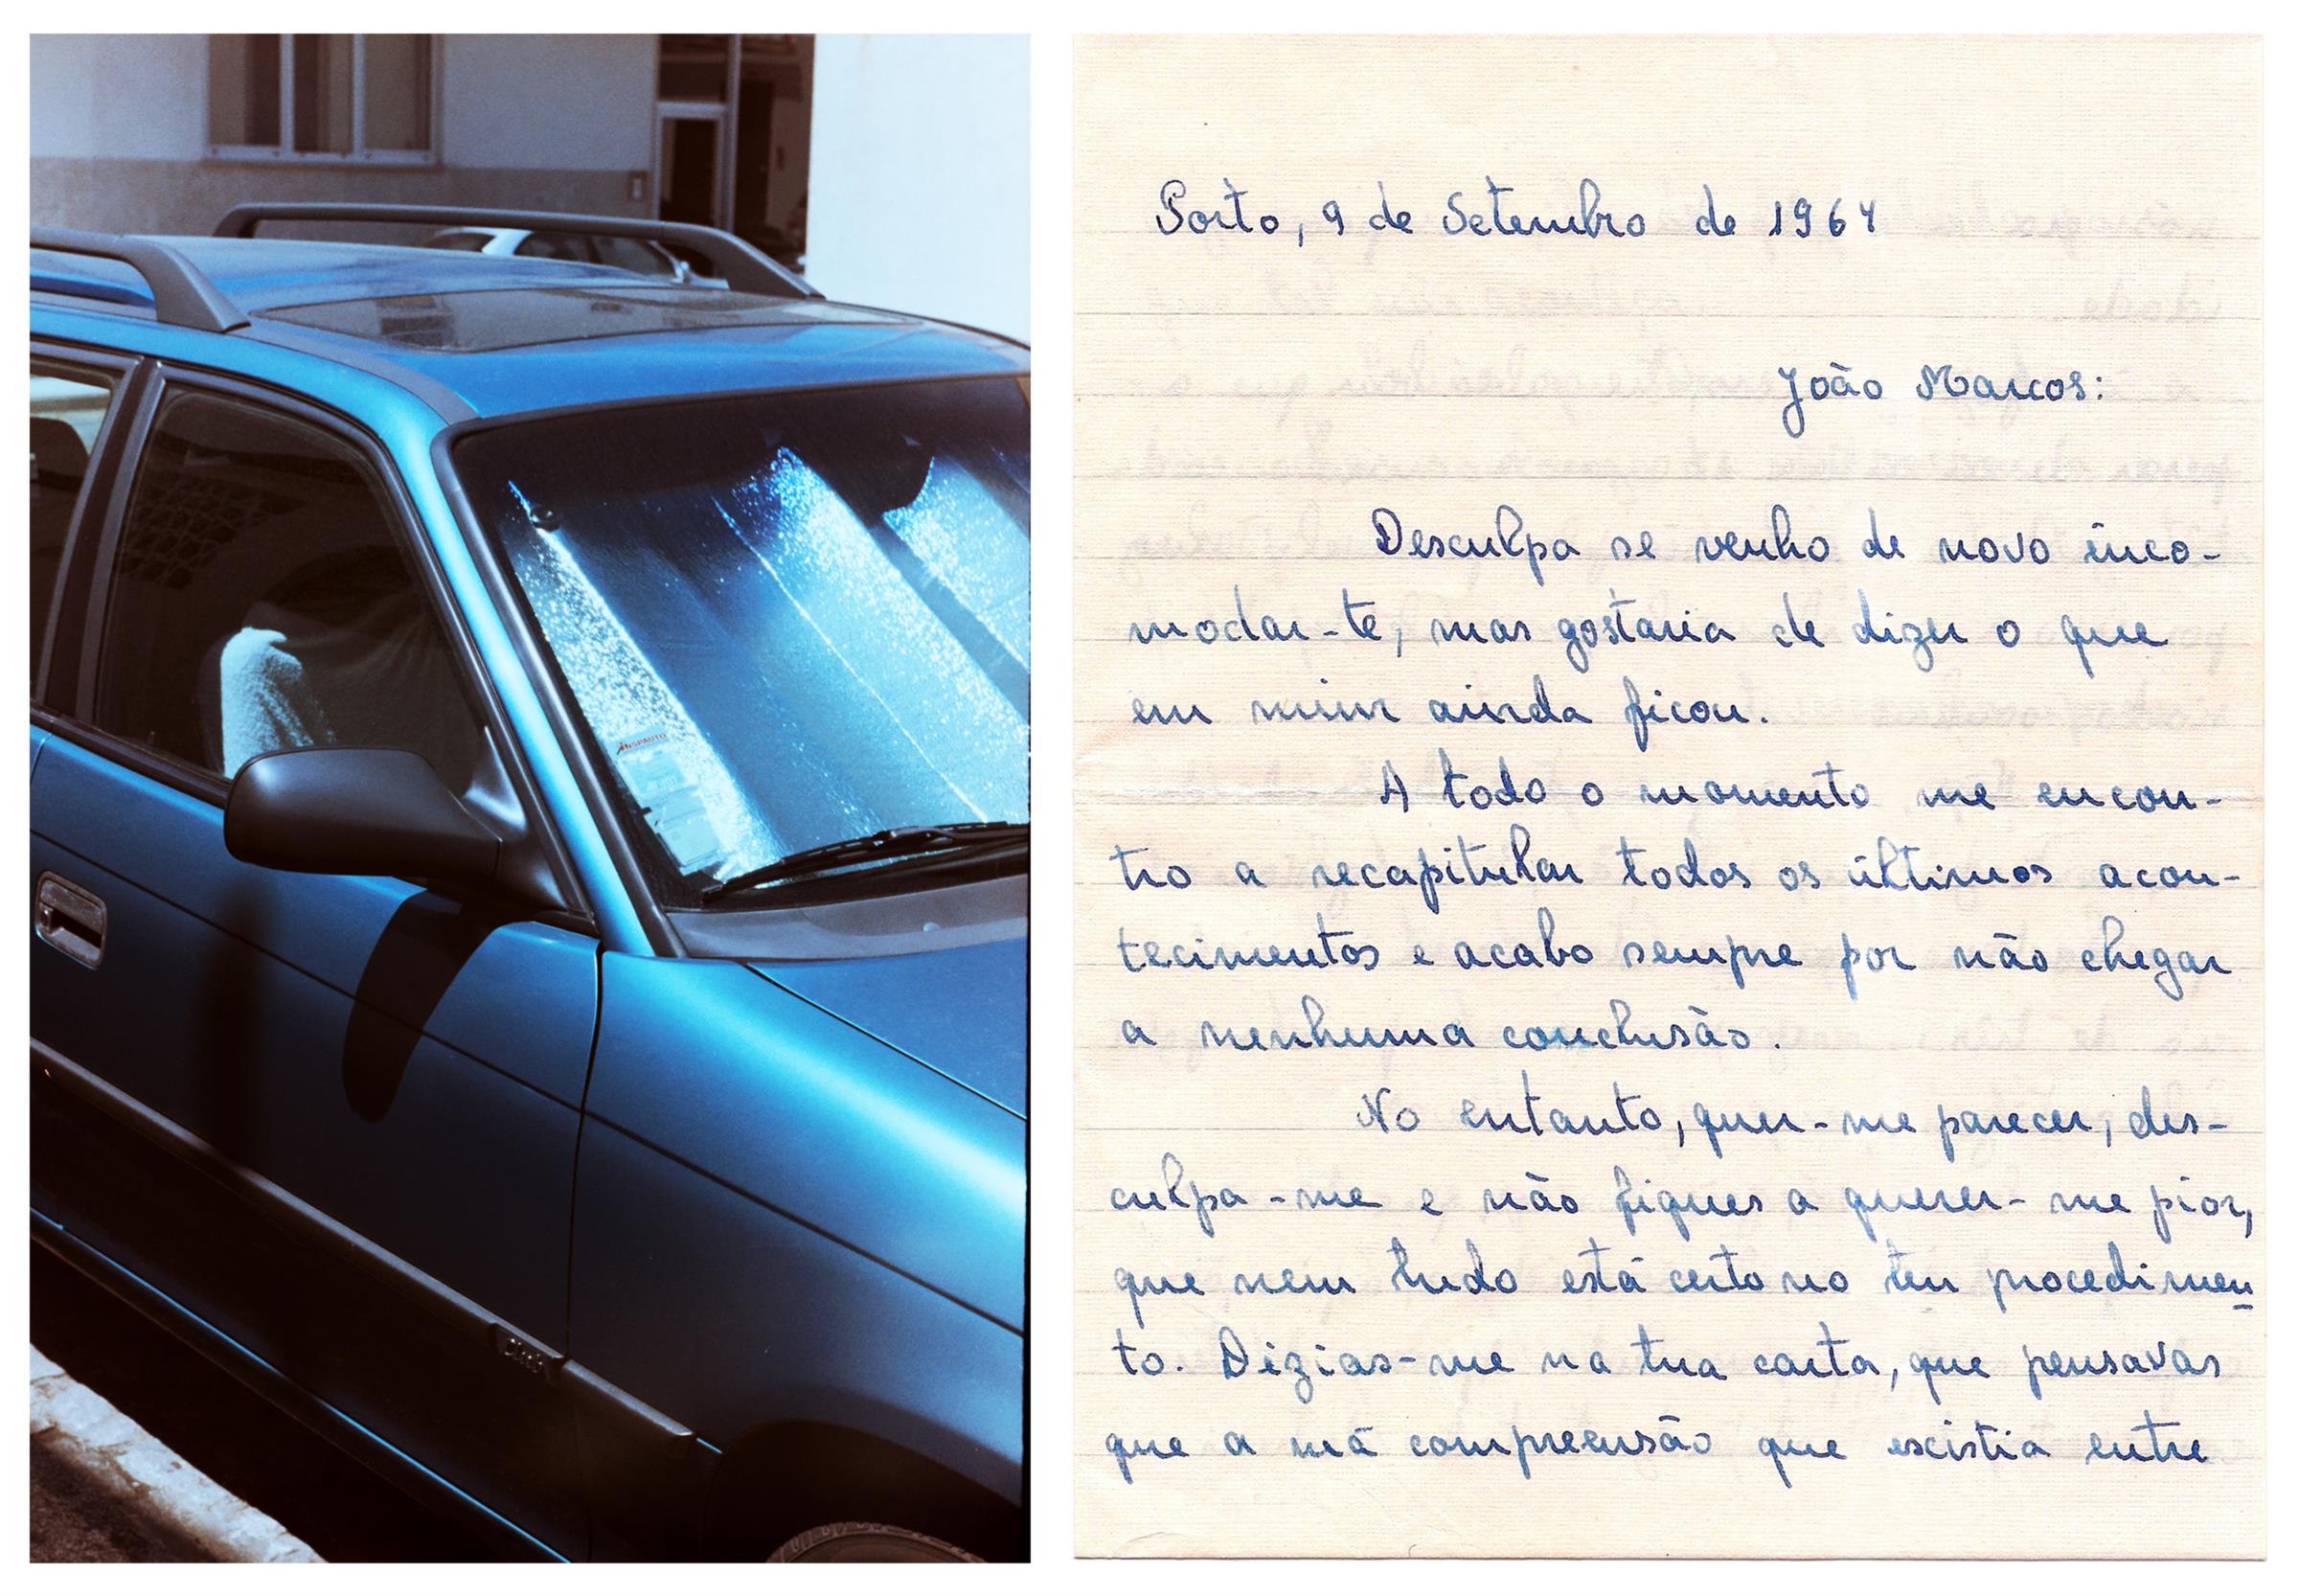 INSPAUTO
Porto, 9 de Setembro de 1964
João Marcos:
Desculpa se venho de novo inco-
modar-te, mas gostaria de dizer o que
em mim ainda ficou.
A todo o momento me encon-
tro a recapitular todos os últimos acon-
tecimentos e acabo sempre por não chegar
a nenhuma conclusão.
No entanto, quer-me parecer, des-
culpa-me e não fiques a querer-me pior,
que nem tudo está certo no teu procedimen
to. Dizias-me na tua carta, que pensavas
que a má compreensão que existia entre